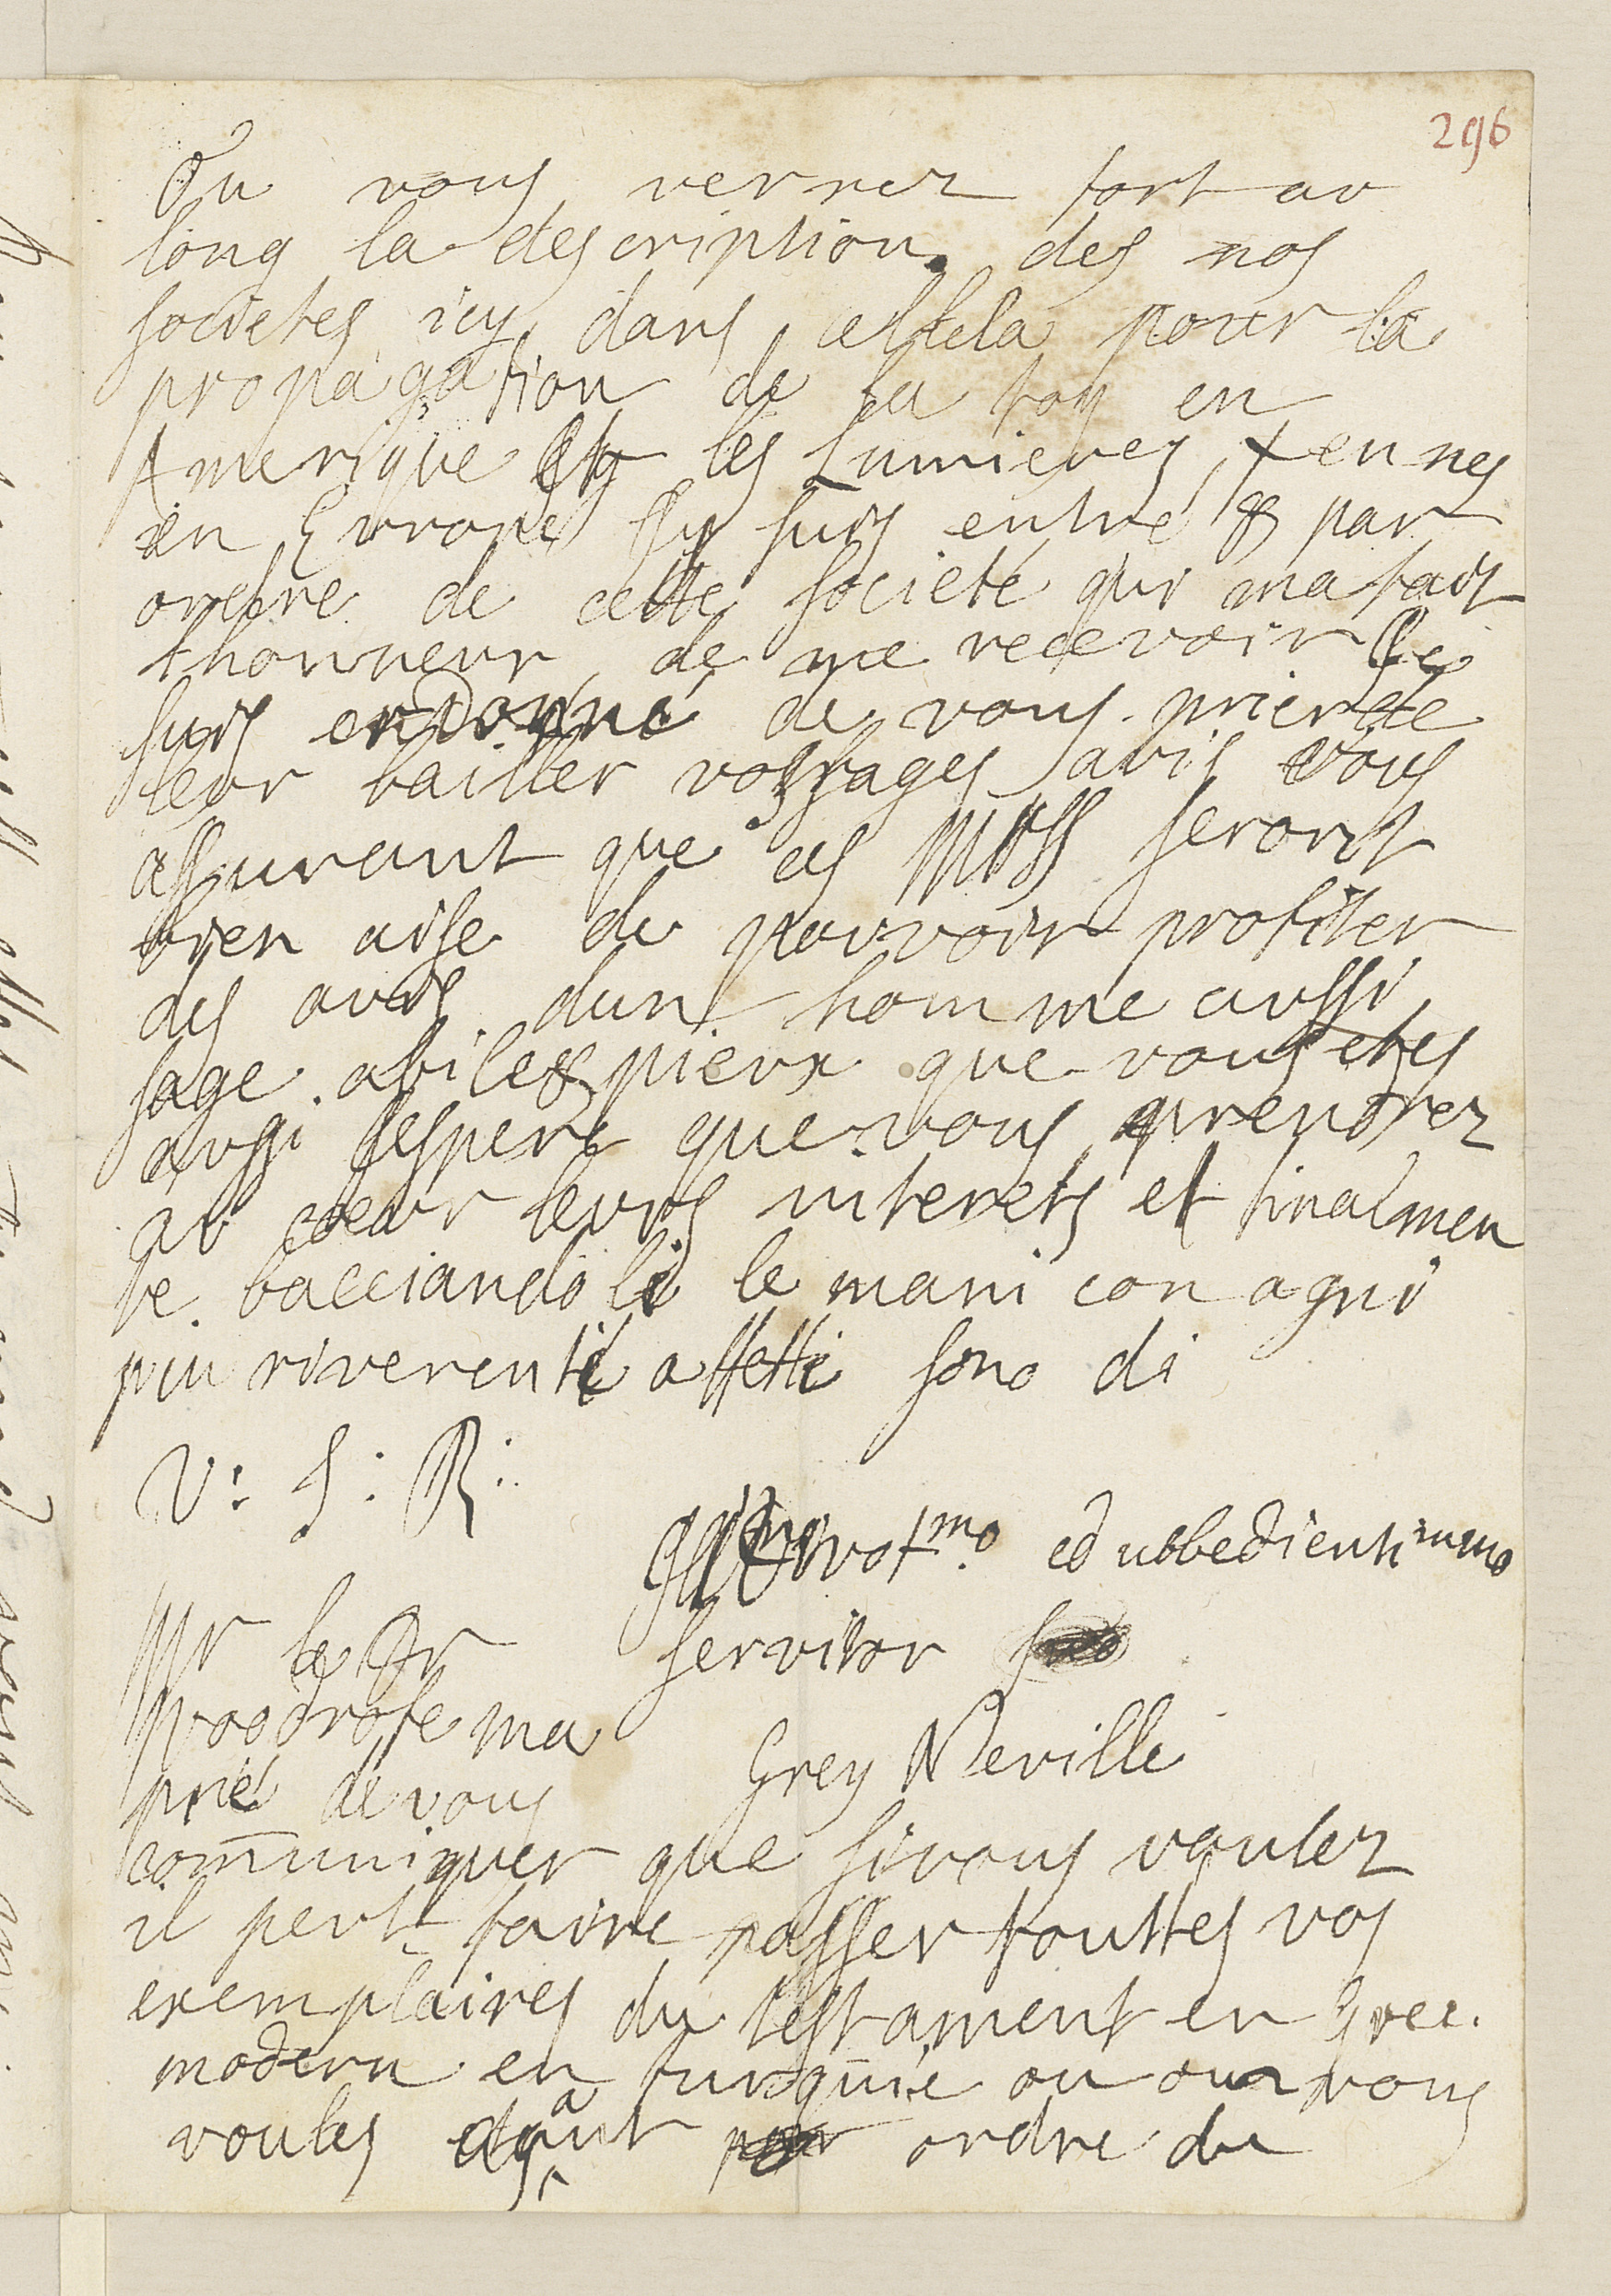 296
Ou vous verrez fort au
long la description des nos
societes icy dans celle la pour la
propagation de la foy en
Amerique les Lumieres
en Europe J'y suis entré & par
ordre de cette societé qui ma fait
lhonneur de me recevoir Je
suis ordonné de vous prier de
leur bailler vos sages avis vous
assurant que ces Mess seront
bien aise de pouvoir profiter
des avis dun homme aussi
sage abile & pieux que vous etes
aussi jespere que vous prendrez
au coeur leurs interets et finalmen
te bacciandoli le mani con ogni
piu riverenti affetti sono di
V: S: R:
Divot^mo ed ubbedienti^mmo
servitor
Grey Neville
Mr le Dr
Woodrofe ma
prié de vous
com̄uniquer que si vous voulez
il peut faire passer touttes vos
exemplaires du testament en Grec
modern en turquie ou vous
voules ordre de